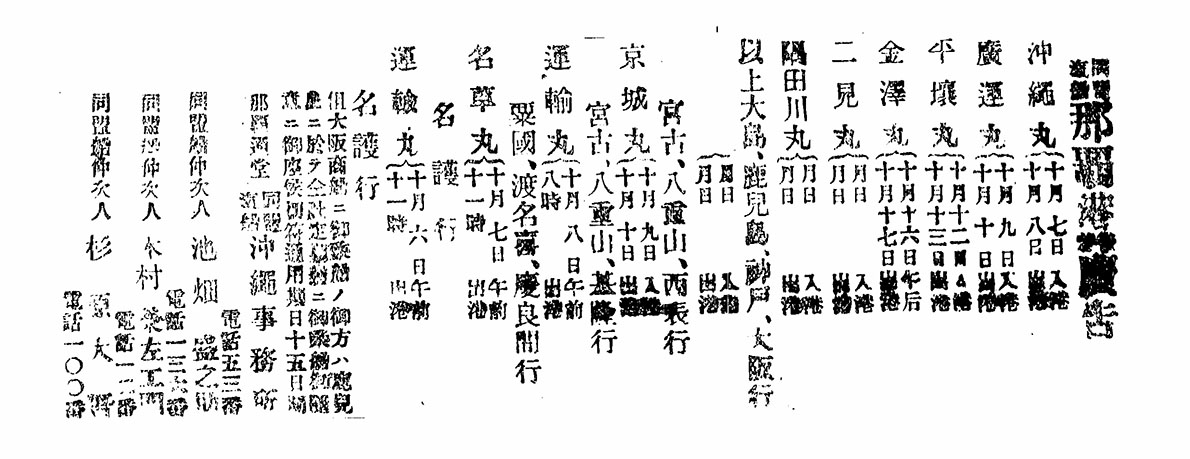 同盟
滊船
那覇港廣告
沖繩丸
十月七日入港
十月八日出港
廣運丸
十月九日入港
十月十日出港
平壤丸
十月十二日入港
十月十三日出港
金澤丸
十月十六日午后
十月十七日出港
二見丸
月日入港
月日出港
隅田川丸
月日入港
月日出港
以上大島、鹿兒島、神戸、大阪行
月日入港
月日出港
宮古、八重山、西表行
京城丸
十月九日入港
十月十日出港
宮古、八重山、基隆行
運輸丸
十月八日午前
八時出港
粟國、渡名喜、慶良間行
名草丸
十月七日午前
十一時出港
名護行
運輸丸
十月六日午前
十一時出港
名護行
但大阪商船ニ御乘船ノ御方ハ鹿兒
島ニ於テ
意ニ御座候
通用期日十五日間
那覇通堂
同盟
滊船
沖繩事務所
電話五三番
同盟船仲次人
池畑
電話一三六番
同盟滊船仲次人
木村
電話一二番
同盟船仲次人
杉原
電話一〇〇番